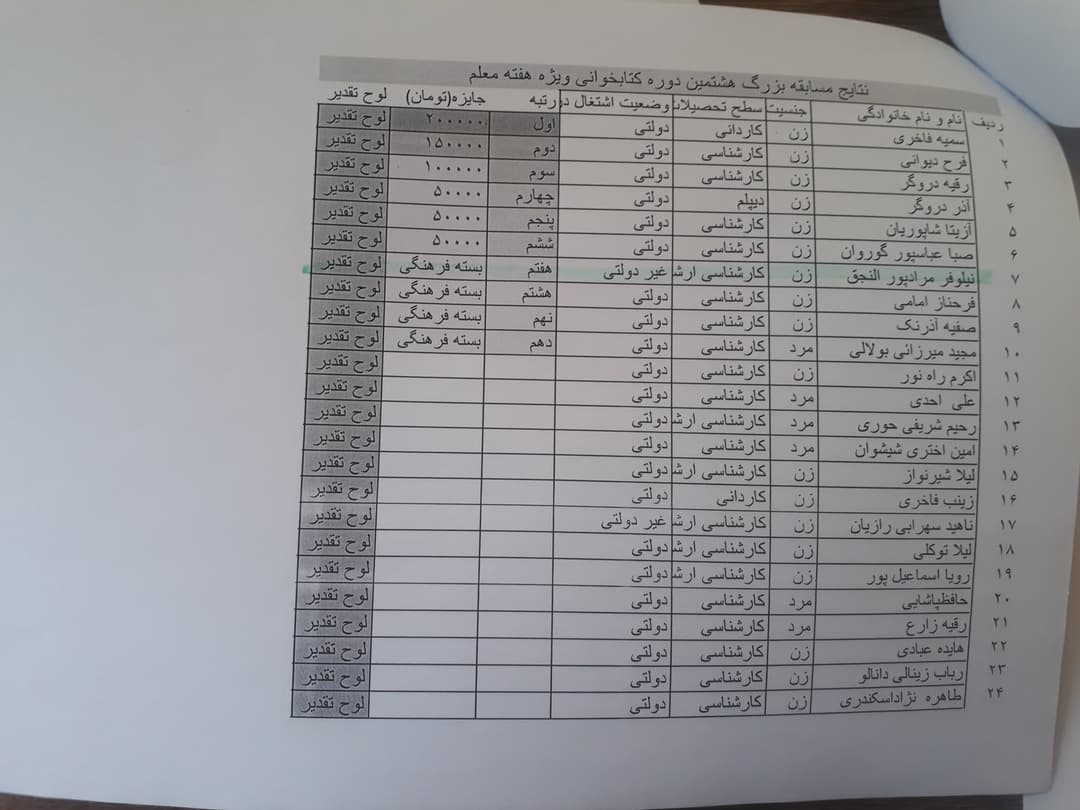 نتایج مسابقه بزرگ هشتمین دوره کتابخوانی ویژه هفته معلم
ردیف نام و نام خانوادگی جنسیت سطح تحصیلات وضعیت اشتغال رتبه جایزه(تومان) لوح تقدیر
۱ سمیه فاخری زن کاردانی دولتی اول ۲۰۰۰۰۰۰ لوح تقدیر
۲ فرح دیوانی زن کارشناسی دولتی دوم ۱۵۰۰۰۰ لوح تقدیر
۳ رقیه دروگر زن کارشناسی دولتی سوم ۱۰۰۰۰۰ لوح تقدیر
۴ آذر دروگر زن دیپلم دولتی چهارم ۵۰۰۰۰ لوح تقدیر
۵ آزیتا شاپوریان زن کارشناسی دولتی پنجم ۵۰۰۰۰ لوح تقدیر
۶ صبا عباسپور گوروان زن کارشناسی دولتی ششم ۵۰۰۰۰ لوح تقدیر
۷ نیلوفر مرادپور النجق زن کارشناسی ارشد غیر دولتی هفتم بسته فرهنگی لوح تقدیر
۸ فرحناز امامی زن کارشناسی دولتی هشتم بسته فرهنگی لوح تقدیر
۹ صفیه آذرنک زن کارشناسی دولتی نهم بسته فرهنگی لوح تقدیر
۱۰ مجید میرزائی بولالی مرد کارشناسی دولتی دهم بسته فرهنگی لوح تقدیر
۱۱ اکرم راه نور زن کارشناسی دولتی لوح تقدیر
۱۲ علی احدی مرد کارشناسی دولتی لوح تقدیر
۱۳ رحیم شریفی حوری مرد کارشناسی ارشد دولتی لوح تقدیر
۱۴ امین اختری شیشوان مرد کارشناسی دولتی لوح تقدیر
۱۵ لیلا شیرنواز زن کارشناسی ارشد دولتی لوح تقدیر
۱۶ زینب فاخری زن کاردانی دولتی لوح تقدیر
۱۷ ناهید سهرابی رازیان زن کارشناسی ارشد غیر دولتی لوح تقدیر
۱۸ لیلا توکلی زن کارشناسی ارشد دولتی لوح تقدیر
۱۹ رویا اسماعیل پور زن کارشناسی ارشد دولتی لوح تقدیر
۲۰ حافظپاشایی مرد کارشناسی دولتی لوح تقدیر
۲۱ رقیه زارع مرد کارشناسی دولتی لوح تقدیر
۲۲ هایده عبادی زن کارشناسی دولتی لوح تقدیر
۲۳ رباب زینالی دانالو زن کارشناسی دولتی لوح تقدیر
۲۴ طاهره نژاداسکندری زن کارشناسی دولتی لوح تقدیر